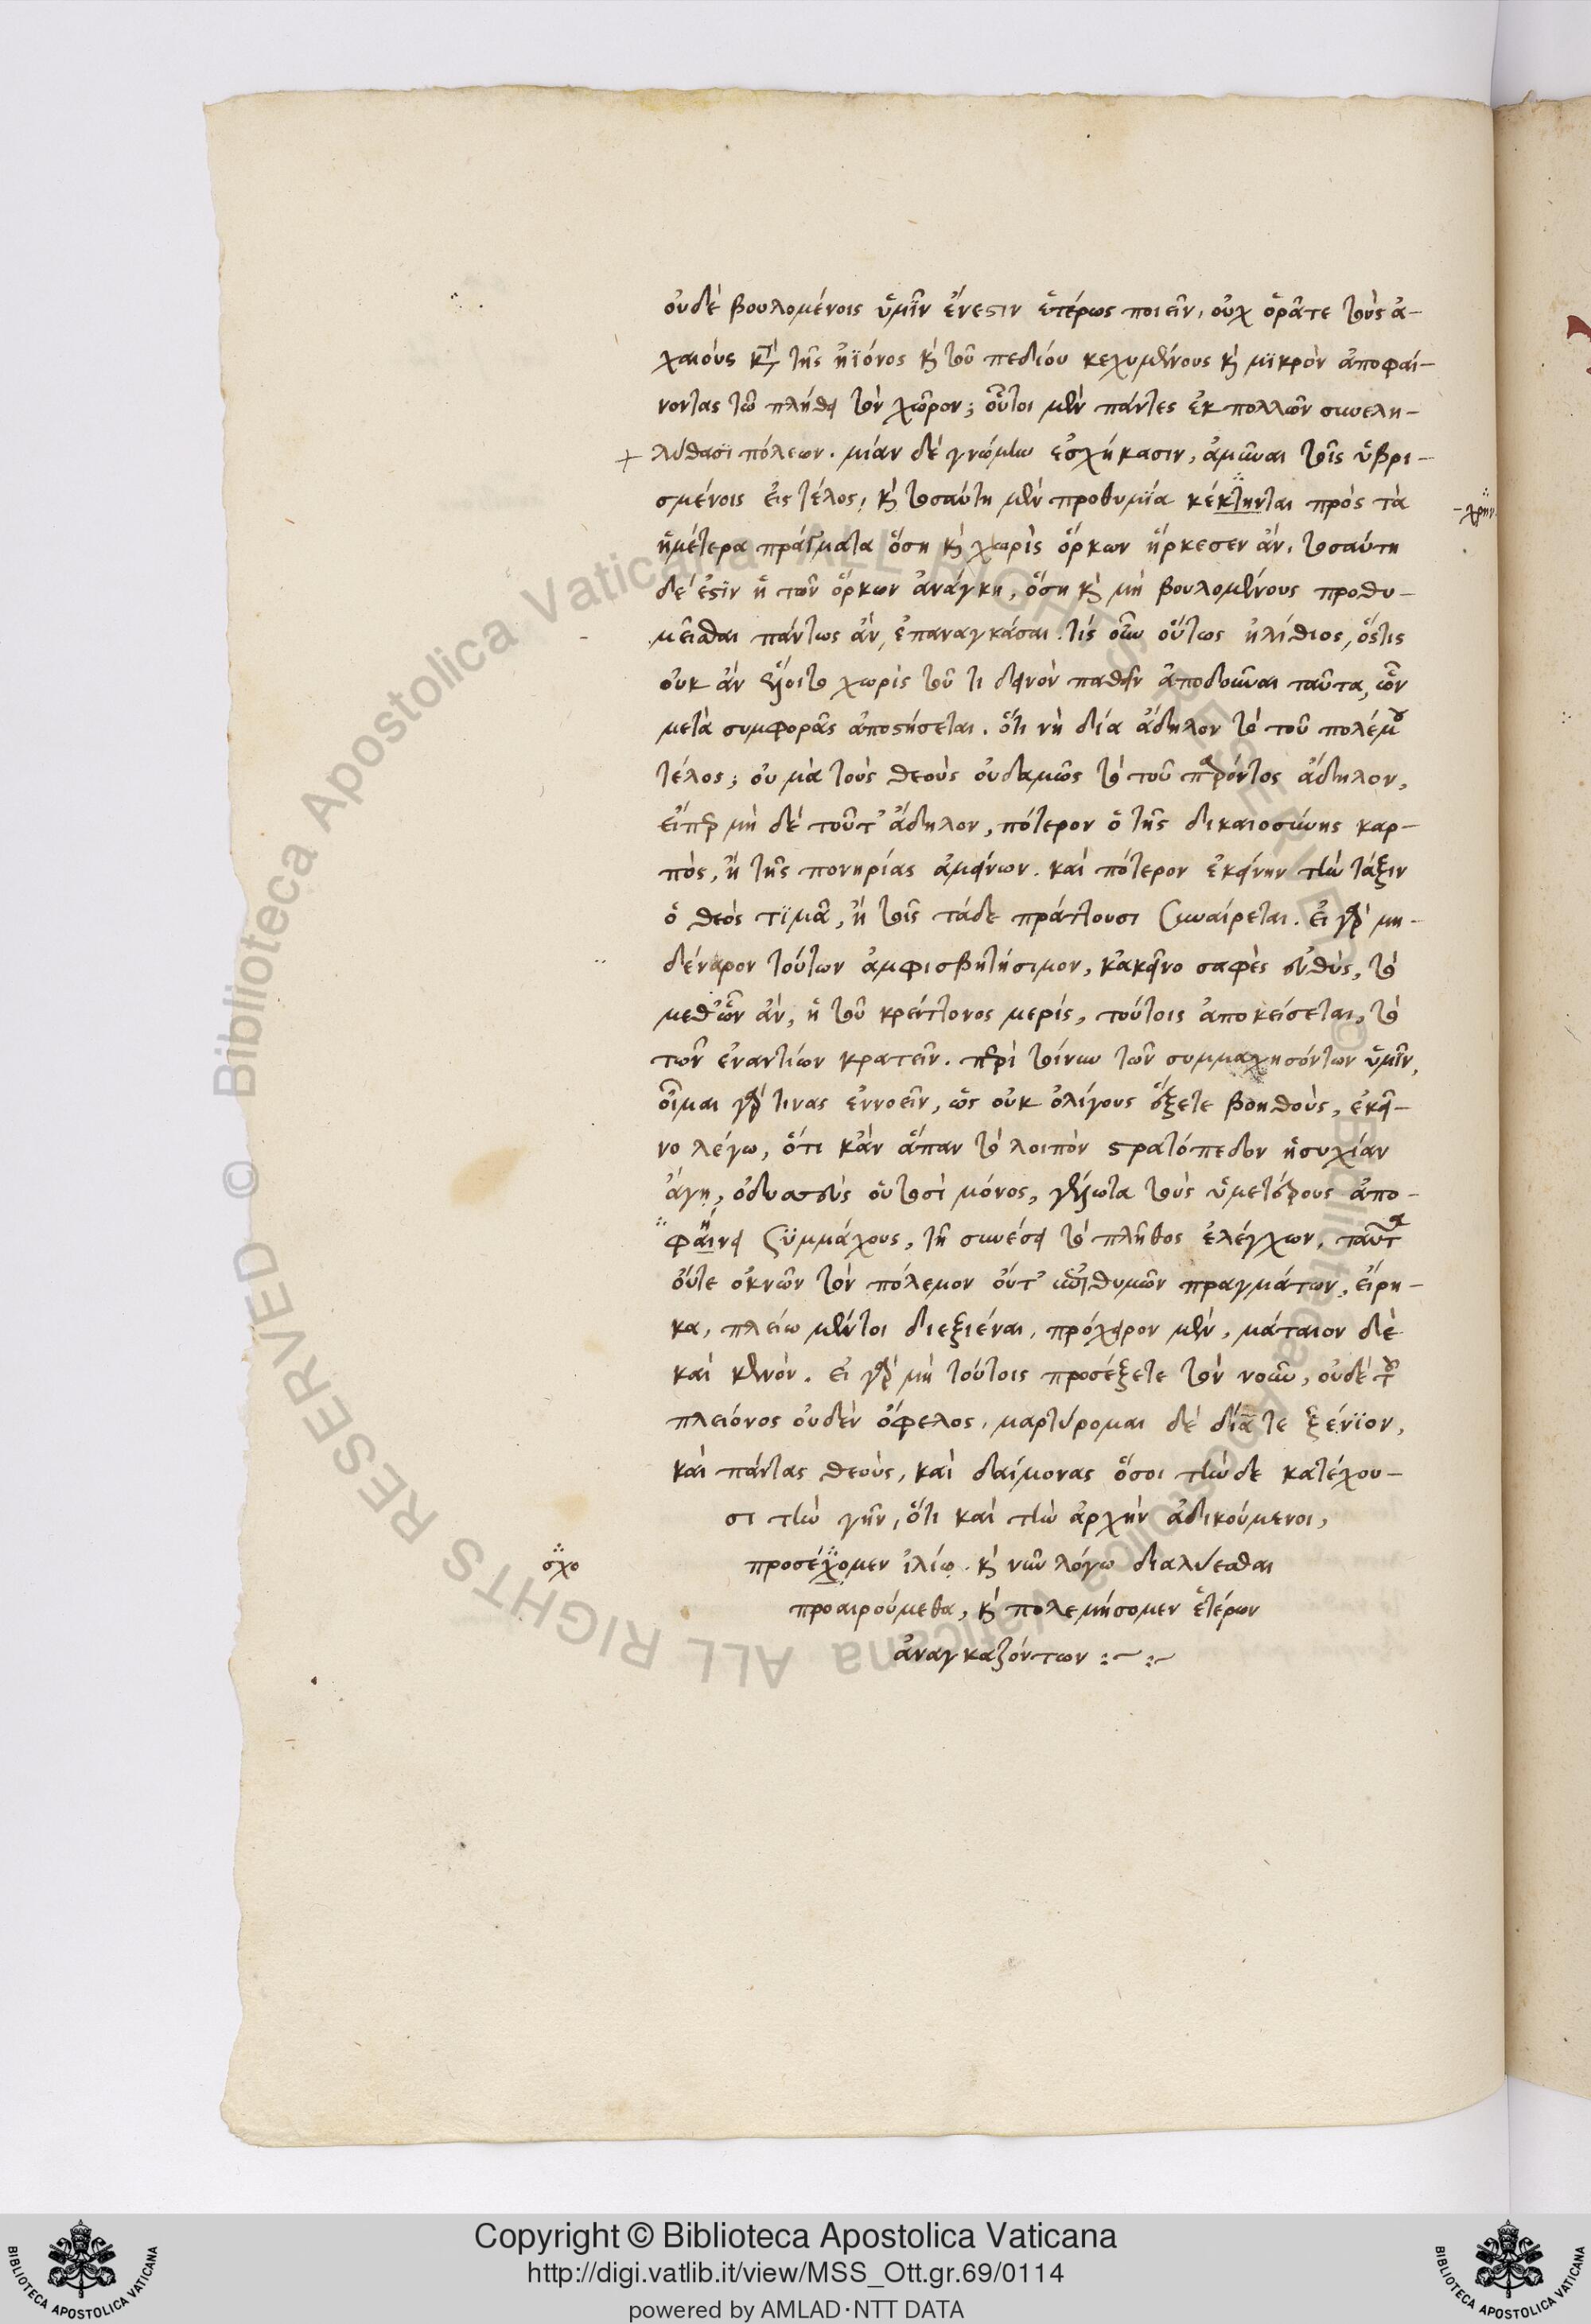 οὐδὲ βουλομένοις ὑμῖν ἔνεστιν ἑτέρως ποιεῖν, οὐχ ὁρᾶτε τοὺς ἀ-
χαιοὺς κατὰ τῆς ἠϊόνος καὶ τοῦ πεδίου κεχυμένους καὶ μικρὸν ἀποφαί-
νοντας τῷ πλήθει τὸν χῶρον; οὗτοι μὲν πάντες ἐκ πολλῶν συνελη-
+ λύθασι πόλεων. μίαν δὲ γνώμην ἐσχήκασιν, ἀμῦναι τοῖς ὑβρι-
σμένοις εἰς τέλος, καὶ τοσαύτη μὲν προθυμία κέκτηνται πρὸς τὰ
-χρην
ἡμέτερα πράγματα ὅση καὶ χωρὶς ὅρκων ἤρκεσεν ἄν, τοσαύτη
δέ ἐστιν ἡ τῶν ὅρκων ἀνάγκη, ὅση καὶ μὴ βουλομένους προθυ-
μεῖσθαι πάντως ἄν, ἐπαναγκάσαι. τίς οὖν οὕτως ἠλίθιος, ὅστις
οὐκ ἂν ἕλοιτο χωρὶς τοῦ τι δεινὸν παθεῖν ἀποδοῦναι ταῦτα, ὧν
μετὰ συμφορᾶς ἀποστήσεται. ὅτι νὴ δία ἄδηλον τὸ τοῦ πολέμου
τέλος; οὐ μὰ τοὺς θεοὺς οὐδαμῶς τὸ τοῦ παρόντος ἄδηλον,
εἴπερ μὴ δὲ τοῦτ' ἄδηλον, πότερον ὁ τῆς δικαιοσύνης καρ-
πὸς, ἢ τῆς πονηρίας ἀμείνων. καὶ πότερον ἐκείνην τὴν τάξιν
ὁ θεὸς τιμᾷ, ἢ τοῖς τάδε πράττουσι συναίρεται. εἰ γὰρ μη-
δέτερον τούτων ἀμφισβητήσιμον, κἀκεῖνο σαφὲς εὐθὺς, τὸ
μεθ' ὧν ἂν, ἡ τοῦ κρείττονος μερίς, τούτοις ἀποκείσεται, τὸ
τῶν ἐναντίων κρατεῖν. περὶ τοίνυν τῶν συμμαχησόντων ὑμῖν,
οἶμαι γάρ τινας ἐννοεῖν, ὡς οὐκ ὀλίγους ἕξετε βοηθοὺς, ἐκεῖ-
νο λέγω, ὅτι κἂν ἅπαν τὸ λοιπὸν στρατόπεδον ἡσυχίαν
ἄγῃ, ὀδυσσεὺς οὑτοσὶ μόνος, γέλωτα τοὺς ὑμετέρους ἀπο-
φαίνει συμμάχους, τῇ συνέσει τὸ πλῆθος ἐλέγχων, ταῦτα
οὔτε ὀκνῶν τὸν πόλεμον οὔτ' ἐπιθυμῶν πραγμάτων, εἴρη-
κα, πλείω μέντοι διεξιέναι, πρόχειρον μὲν, μάταιον δὲ
καὶ κενόν. εἰ γὰρ μὴ τούτοις προσέξετε τὸν νοῦν, οὐδὲ τοῦ
πλειόνος οὐδὲν ὄφελος, μαρτύρομαι δὲ δία τε ξένιον,
καὶ πάντας θεοὺς, καὶ δαίμονας ὅσοι τήνδε κατέχου-
σι τὴν γῆν, ὅτι καὶ τὴν ἀρχὴν ἀδικούμενοι,
σχο
προσέχομεν ἰλίῳ. καὶ νῦν λόγῳ διαλύεσθαι
προαιρούμεθα, καὶ πολεμήσομεν ἑτέρων
ἀναγκαζόντων :~ :~
Copyright © Biblioteca Apostolica Vaticana
http://digi.vatlib.it/view/MSS_Ott.gr.69/0114
powered by AMLAD·NTT DATA